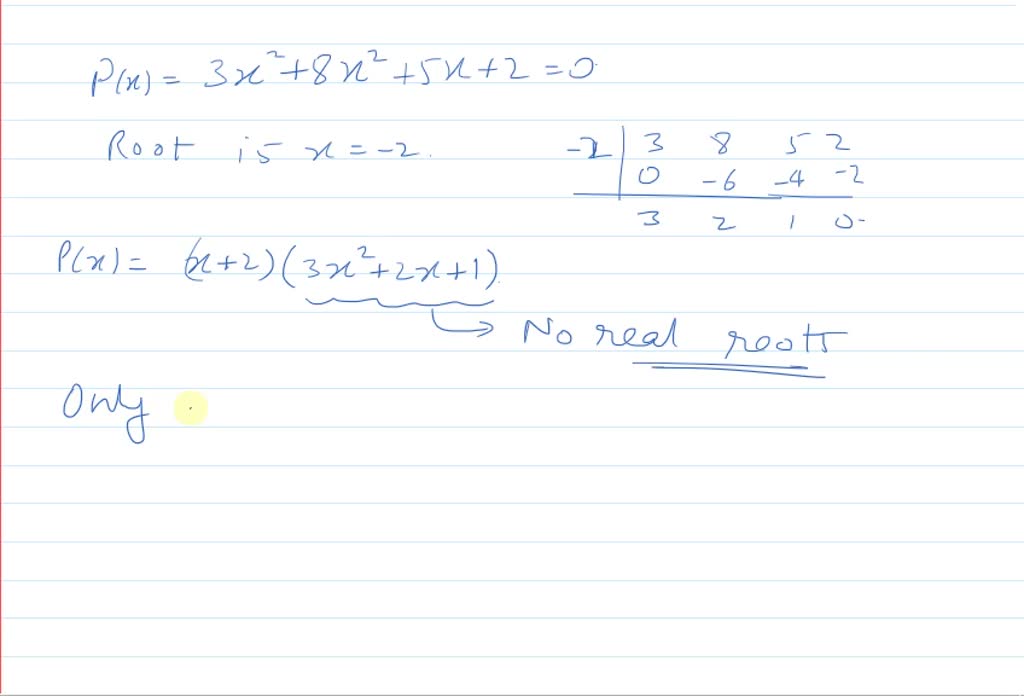 P(x) = 3x²+8x²+5x+2=0
Root is x = -2.
-2 | 3 8 5 2
0 -6 -4 -2
3 2 1 0
P(x) = (x+2)(3x²+2x+1)
→ No real roots
Only